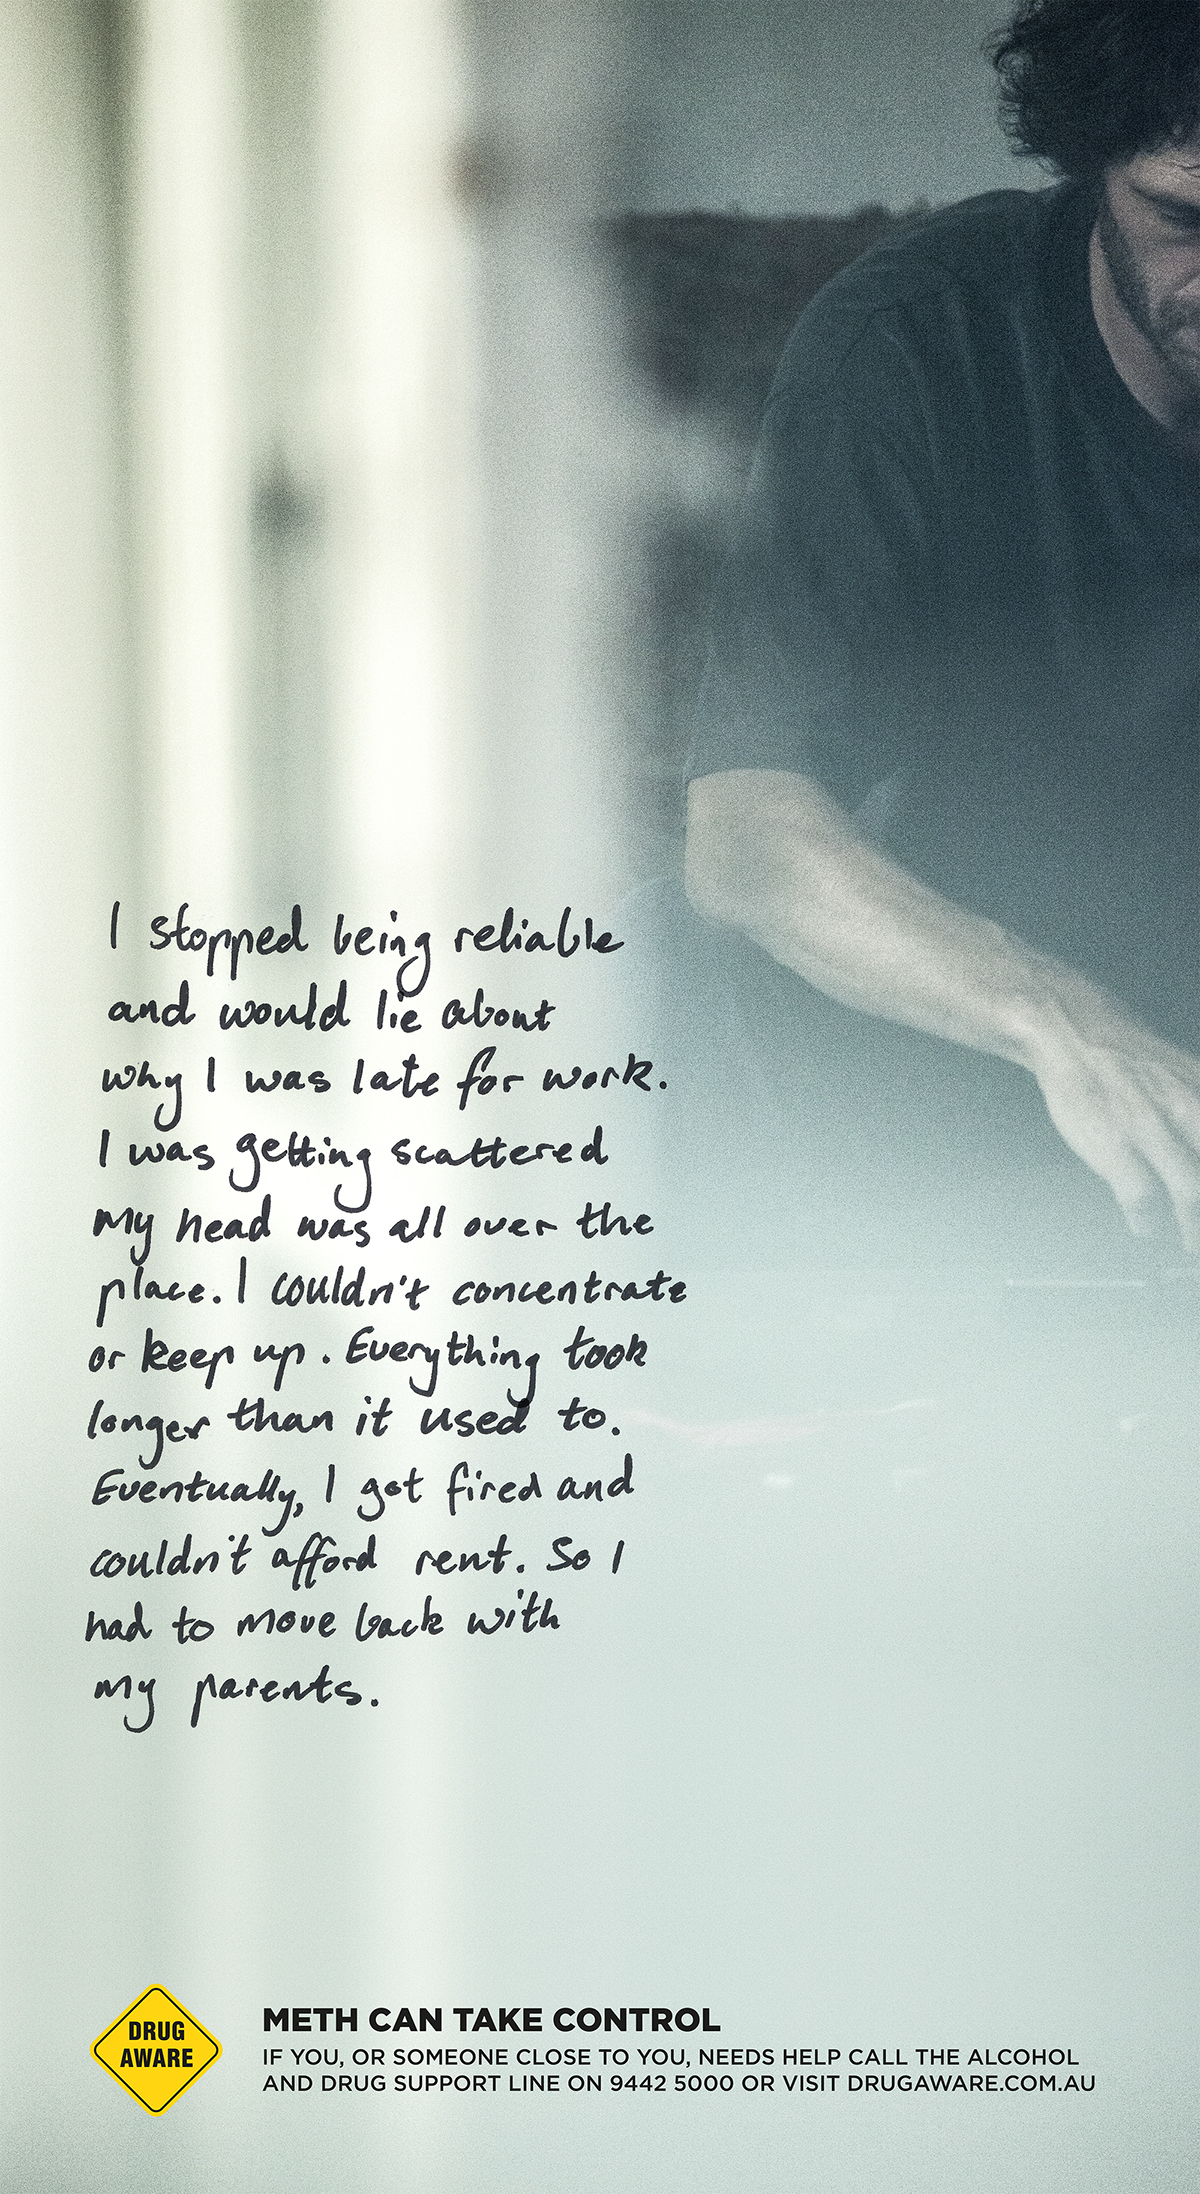 I stopped being reliable
and would lie about
why I was late for work.
I was getting scattered
my head was all over the
place. I couldn't concentrate
or keep up. Everything took
longer than it used to.
Eventually, I got fired and
couldn't afford rent. So I
had to move back with
my parents.
DRUG
AWARE
METH CAN TAKE CONTROL
IF YOU, OR SOMEONE CLOSE TO YOU, NEEDS HELP CALL THE ALCOHOL
AND DRUG SUPPORT LINE ON 9442 5000 OR VISIT DRUGAWARE.COM.AU